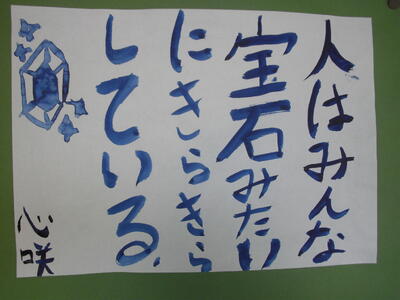 人はみんな
宝石みたい
にきらきら
している.
心咲